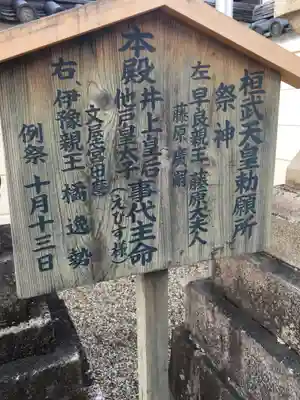 桓武天皇勅願所
祭神
左、早良親王、藤原大夫人
藤原廣嗣
本殿井上皇后事代主命
他戸皇太子(えびす様)
文屋宮田麿
右、伊豫親王、橘逸勢
例祭 十月十三日